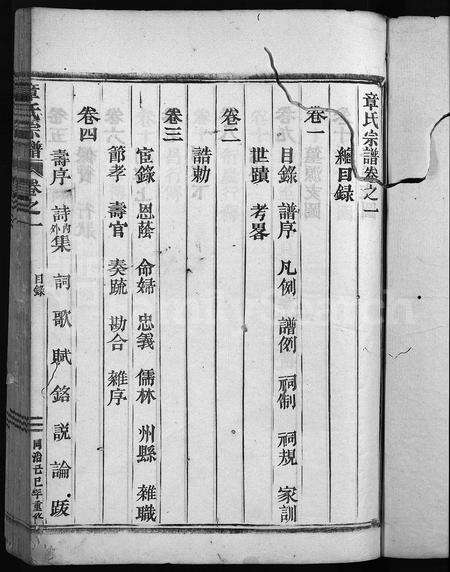 章氏宗譜卷之一
總目録
卷一
目錄 譜序 凡例 譜例 祠制 祠規 家訓
世蹟 考畧
卷二
誥勅
卷三
宦錄 恩蔭 命婦 忠義 儒林 州縣 雜職
節孝 壽官 奏疏 勘合 雜序
卷四
壽序 詩内外集 詞歌賦銘説論跋
章氏宗譜 卷之一 目錄 同治己巳年重修